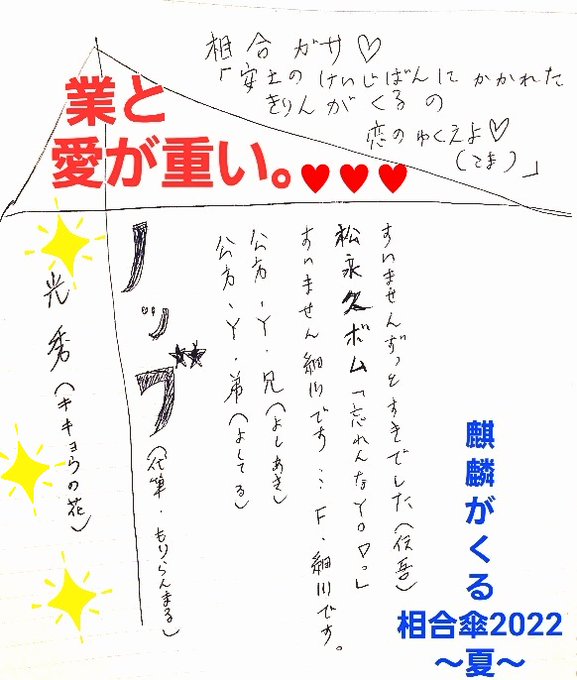 相合ガサ♡
「安土のけいじばんにかかれた
きりんがくるの
恋のゆくえよ♡
（こま）」
業と
愛が重い。♥♥♥
すいませんずっとすきでした（伝吾）
松永久ボム「忘れんなYO♡。」
すいません細川です…F・細川です。
公方・Y・兄（よしあき）
公方・Y・弟（よしてる）
ノッブ★★（代筆・もりらんまる）
光秀（キキョウの花）
麒麟がくる
相合傘2022
～夏～